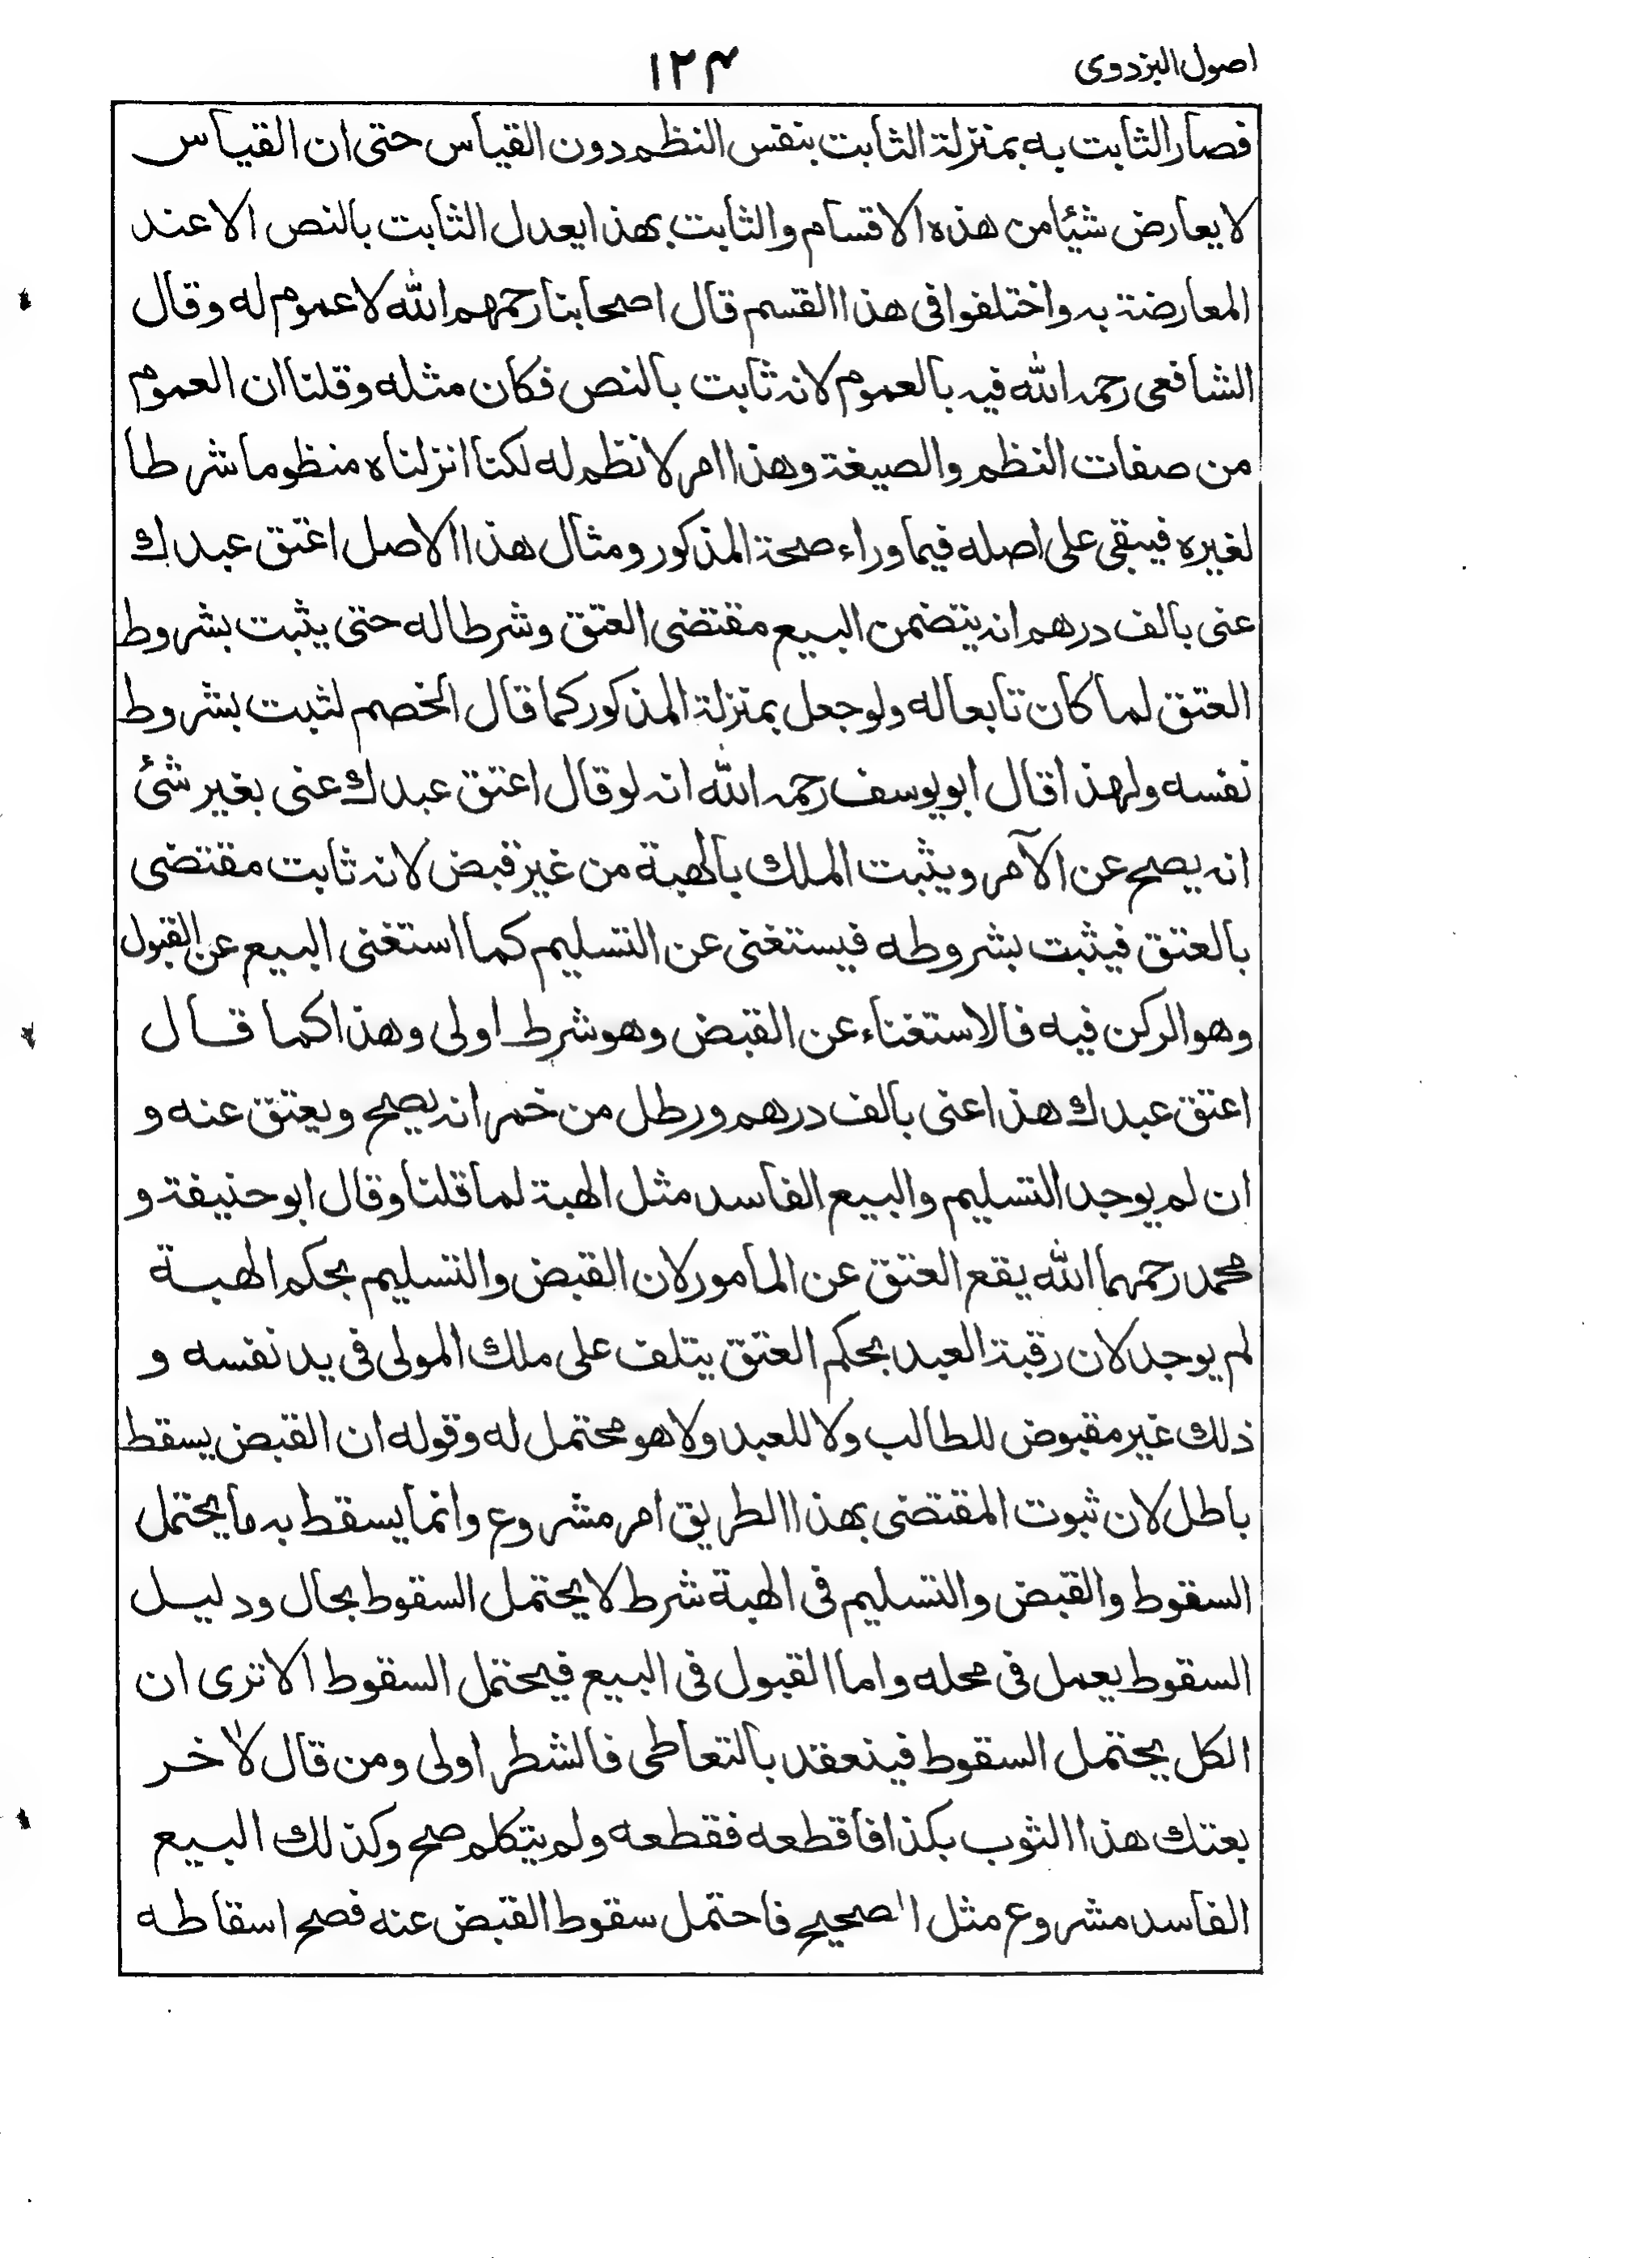 اصول البزدوی
۱۲۴
فصار الثابت به بمنزلة الثابت بنفس النظم دون القياس حتى ان القياس
لا يعارض شيئا من هذه الاقسام والثابت بهذا يعدل الثابت بالنص الا عند
المعارضة به واختلفوا فى هذا القسم قال اصحابنا رحمهم الله لا عموم له وقال
الشافعى رحمه الله فيه بالعموم لانه ثابت بالنص فكان مثله وقلنا ان العموم
من صفات النظم والصيغة وهذا امر لا نظم له لكنا انزلناه منظوما شرطا
لغيره فيبقى على اصله فيما وراء صحة المذكور ومثال هذا الاصل اعتق عبدك
عنى بالف درهم انه يتضمن البيع مقتضى العتق وشرطا له حتى يثبت بشروط
العتق لما كان تابعا له ولو جعل بمنزلة المذكور كما قال الخصم لثبت بشروط
نفسه ولهذا قال ابو يوسف رحمه الله انه لو قال اعتق عبدك عنى بغير شئ
انه يصح عن الآمر ويثبت الملك بالهبة من غير قبض لانه ثابت مقتضى
بالعتق فيثبت بشروطه فيستغنى عن التسليم كما استغنى البيع عن القبول
وهو الركن فيه فالاستغناء عن القبض وهو شرط اولى وهذا كما قال
اعتق عبدك هذا عنى بالف درهم ورطل من خمر انه يصح ويعتق عنه و
ان لم يوجد التسليم والبيع الفاسد مثل الهبة لما قلنا وقال ابو حنيفة و
محمد رحمهما الله يقع العتق عن المأمور لان القبض والتسليم بحكم الهبة
لم يوجد لان رقبة العبد بحكم العتق يتلف على ملك المولى فى يد نفسه و
ذلك غير مقبوض للطالب ولا للعبد ولا هو محتمل له وقوله ان القبض يسقط
باطل لان ثبوت المقتضى بهذا الطريق امر مشروع وانما يسقط به ما يحتمل
السقوط والقبض والتسليم فى الهبة شرط لا يحتمل السقوط بحال ودليل
السقوط يعمل فى محله واما القبول فى البيع فيحتمل السقوط الا ترى ان
الكل يحتمل السقوط فينعقد بالتعاطى فالشطر اولى ومن قال لآخر
بعتك هذا الثوب بكذا فاقطعه فقطعه ولم يتكلم صح وكذلك البيع
الفاسد مشروع مثل الصحيح فاحتمل سقوط القبض عنه فصح اسقاطه